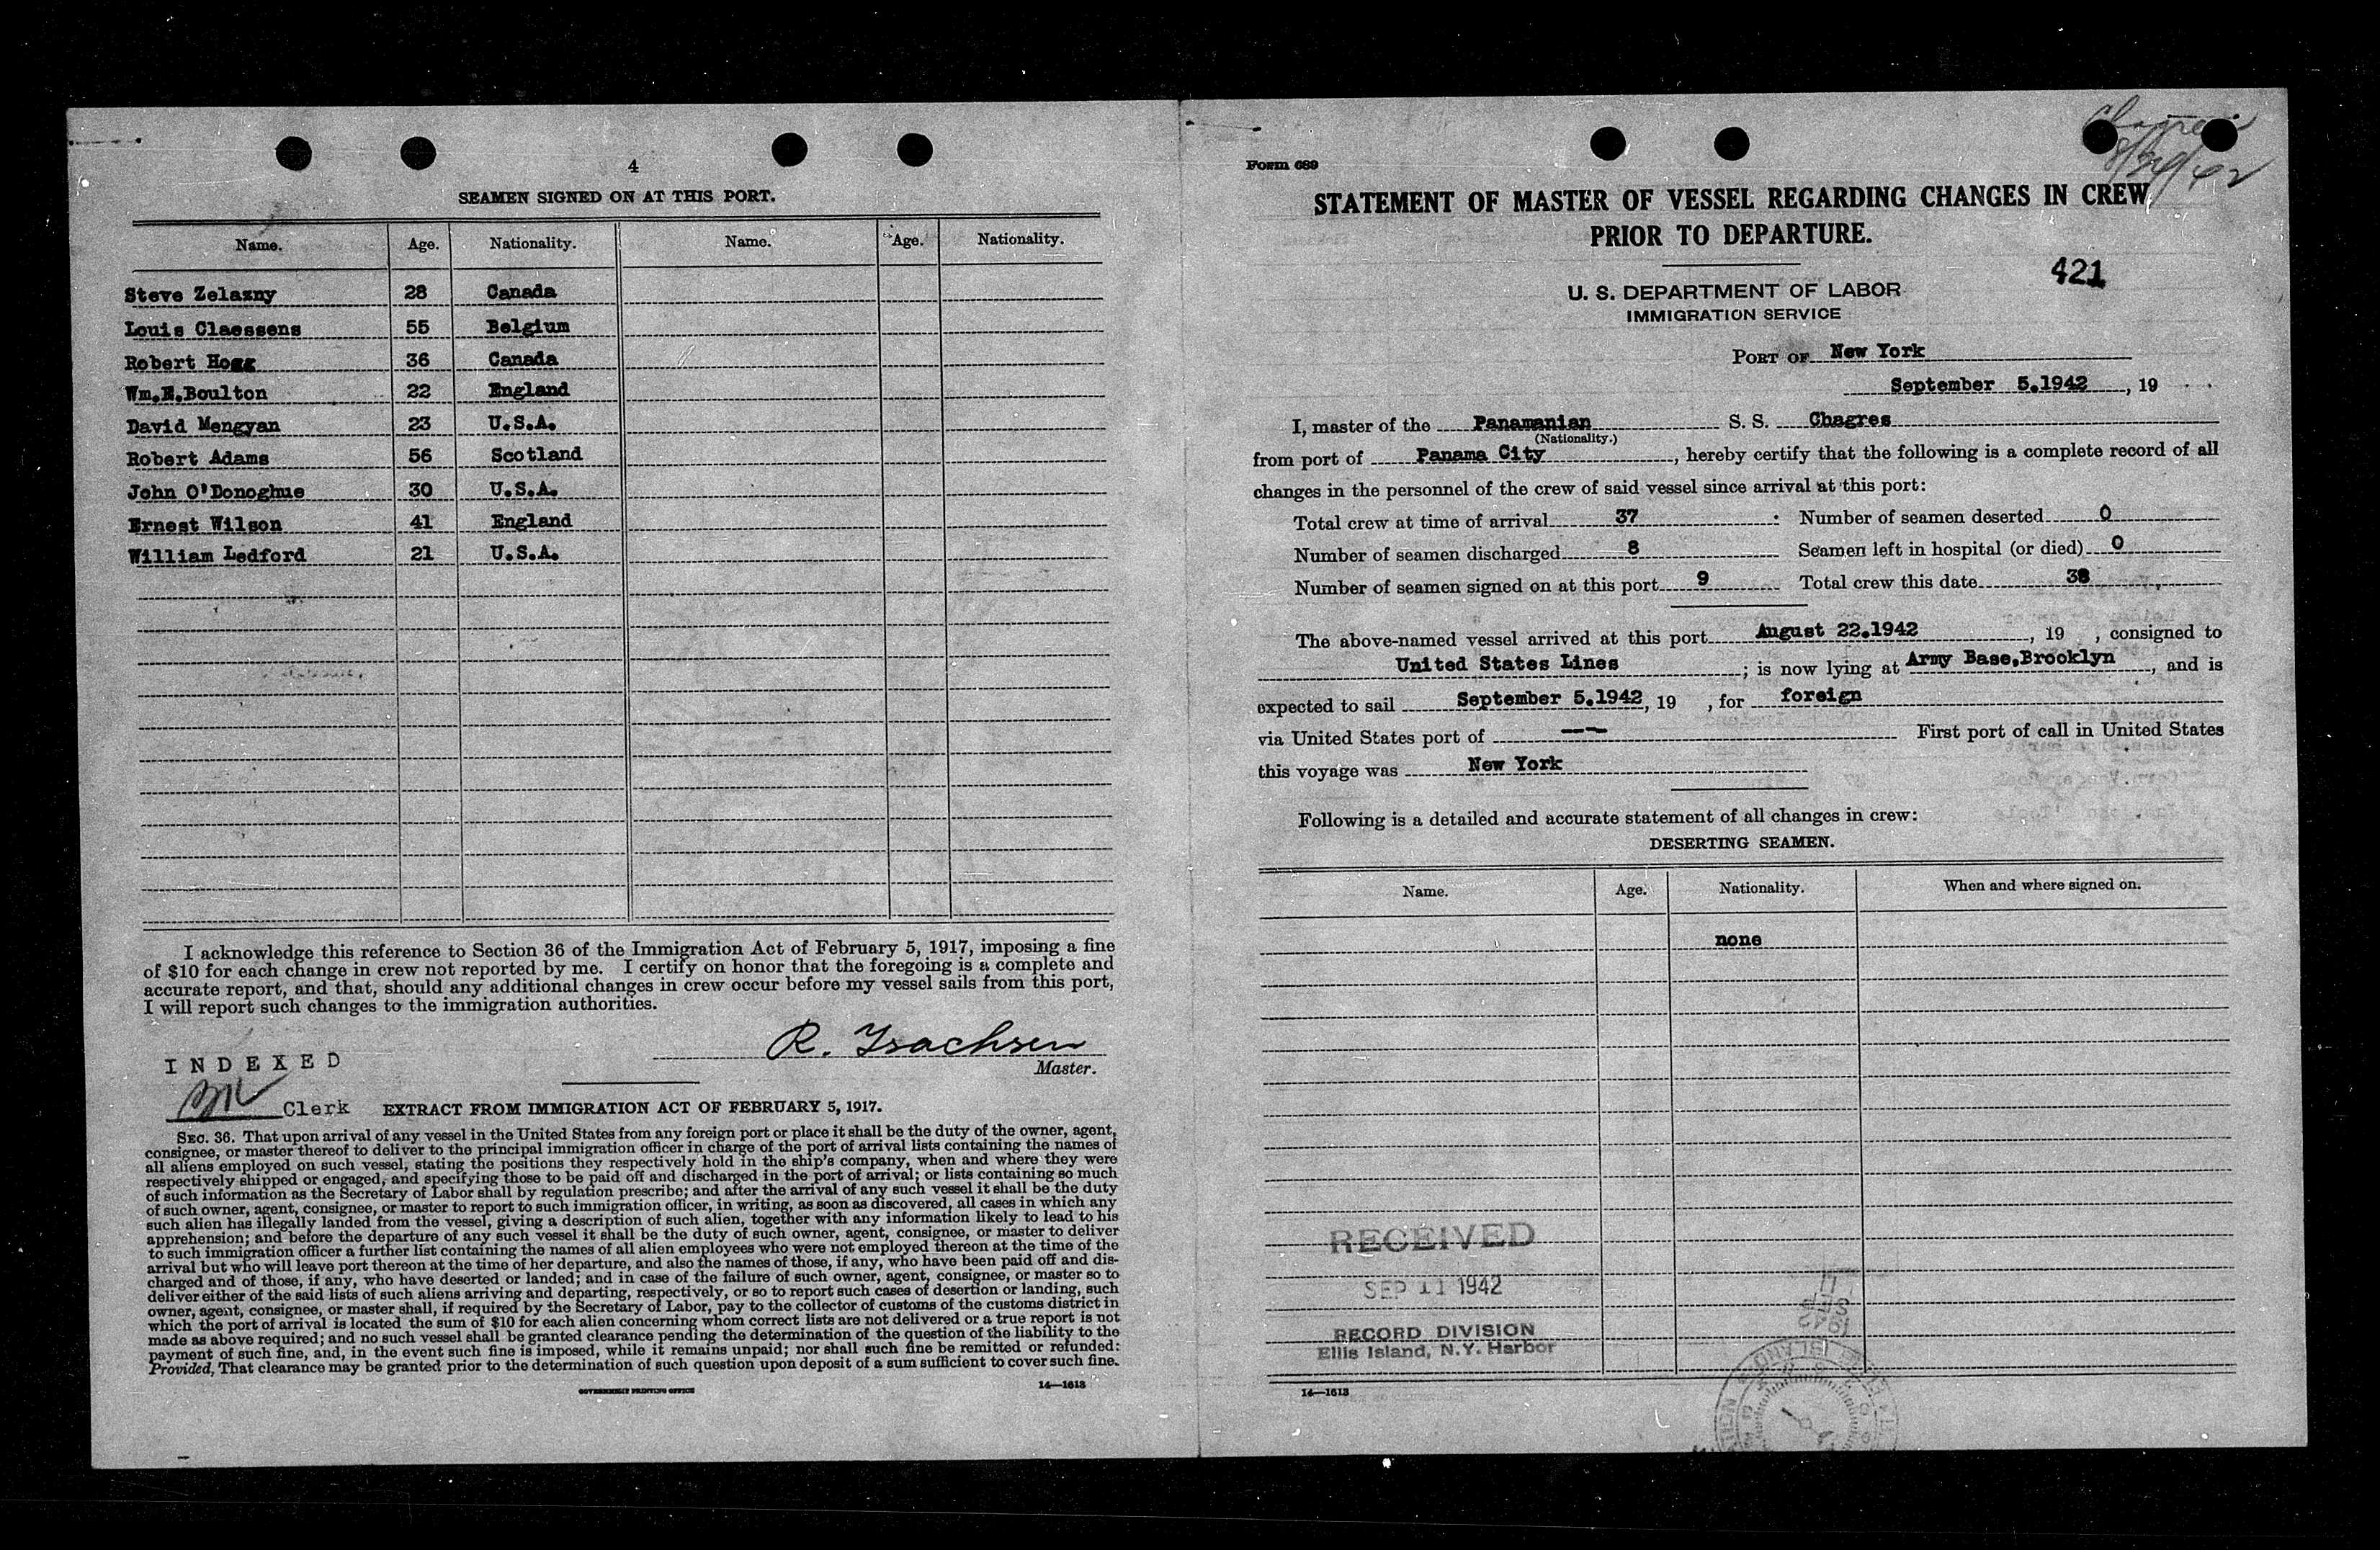 4
SEAMEN SIGNED ON AT THIS PORT.
Name. Age. Nationality. Name. Age. Nationality.
Steve Zelazny 28 Canada
Louis Claessens 55 Belgium
Robert Hogg 36 Canada
Wm.E.Boulton 22 England
David Mengyan 23 U.S.A.
Robert Adams 56 Scotland
John O'Donoghue 30 U.S.A.
Ernest Wilson 41 England
William Ledford 21 U.S.A.
I acknowledge this reference to Section 36 of the Immigration Act of February 5, 1917, imposing a fine
of $10 for each change in crew not reported by me. I certify on honor that the foregoing is a complete and
accurate report, and that, should any additional changes in crew occur before my vessel sails from this port,
I will report such changes to the immigration authorities.
R. Isachsen
Master.
INDEXED
Clerk
EXTRACT FROM IMMIGRATION ACT OF FEBRUARY 5, 1917.
SEC. 36. That upon arrival of any vessel in the United States from any foreign port or place it shall be the duty of the owner, agent,
consignee, or master thereof to deliver to the principal immigration officer in charge of the port of arrival lists containing the names of
all aliens employed on such vessel, stating the positions they respectively hold in the ship's company, when and where they were
respectively shipped or engaged, and specifying those to be paid off and discharged in the port of arrival; or lists containing so much
of such information as the Secretary of Labor shall by regulation prescribe; and after the arrival of any such vessel it shall be the duty
of such owner, agent, consignee, or master to report to such immigration officer, in writing, as soon as discovered, all cases in which any
such alien has illegally landed from the vessel, giving a description of such alien, together with any information likely to lead to his
apprehension; and before the departure of any such vessel it shall be the duty of such owner, agent, consignee, or master to deliver
to such immigration officer a further list containing the names of all alien employees who were not employed thereon at the time of the
arrival but who will leave port thereon at the time of her departure, and also the names of those, if any, who have been paid off and dis-
charged and of those, if any, who have deserted or landed; and in case of the failure of such owner, agent, consignee, or master so to
deliver either of the said lists of such aliens arriving and departing, respectively, or so to report such cases of desertion or landing, such
owner, agent, consignee, or master shall, if required by the Secretary of Labor, pay to the collector of customs of the customs district in
which the port of arrival is located the sum of $10 for each alien concerning whom correct lists are not delivered or a true report is not
made as above required; and no such vessel shall be granted clearance pending the determination of the question of the liability to the
payment of such fine, and, in the event such fine is imposed, while it remains unpaid; nor shall such fine be remitted or refunded:
Provided, That clearance may be granted prior to the determination of such question upon deposit of a sum sufficient to cover such fine.
GOVERNMENT PRINTING OFFICE 14—1613
Form 689
STATEMENT OF MASTER OF VESSEL REGARDING CHANGES IN CREW
PRIOR TO DEPARTURE.
421
U. S. DEPARTMENT OF LABOR
IMMIGRATION SERVICE
PORT OF New York
September 5.1942, 19
I, master of the Panamanian S. S. Chagres
(Nationality.)
from port of Panama City, hereby certify that the following is a complete record of all
changes in the personnel of the crew of said vessel since arrival at this port:
Total crew at time of arrival 37 Number of seamen deserted 0
Number of seamen discharged 8 Seamen left in hospital (or died) 0
Number of seamen signed on at this port 9 Total crew this date 38
The above-named vessel arrived at this port August 22.1942, 19 , consigned to
United States Lines; is now lying at Army Base,Brooklyn, and is
expected to sail September 5.1942, 19 , for foreign
via United States port of --- First port of call in United States
this voyage was New York
Following is a detailed and accurate statement of all changes in crew:
DESERTING SEAMEN.
Name. Age. Nationality. When and where signed on.
none
RECEIVED
SEP 11 1942
RECORD DIVISION
Ellis Island, N.Y. Harbor
14—1613